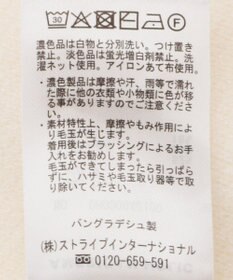 30
濃色品は白物と分別洗い。つけ置き
禁止。淡色品は蛍光増白剤禁止。洗
濯ネット使用。アイロンあて布使用。
・濃色製品は摩擦や汗、雨等で濡れ
た際に他の衣類や小物類に色が移
る事がありますのでご注意くださ
い。
・素材特性上、摩擦やもみ作用によ
り毛玉が生じます。
着用後はブラッシングによるお手
入れをお勧めします。
毛玉ができてしまったら引っぱら
ずに、ハサミや毛玉取り器等で取
り除いて下さい。
バングラデシュ製
(株)ストライプインターナショナル
0120-659-591